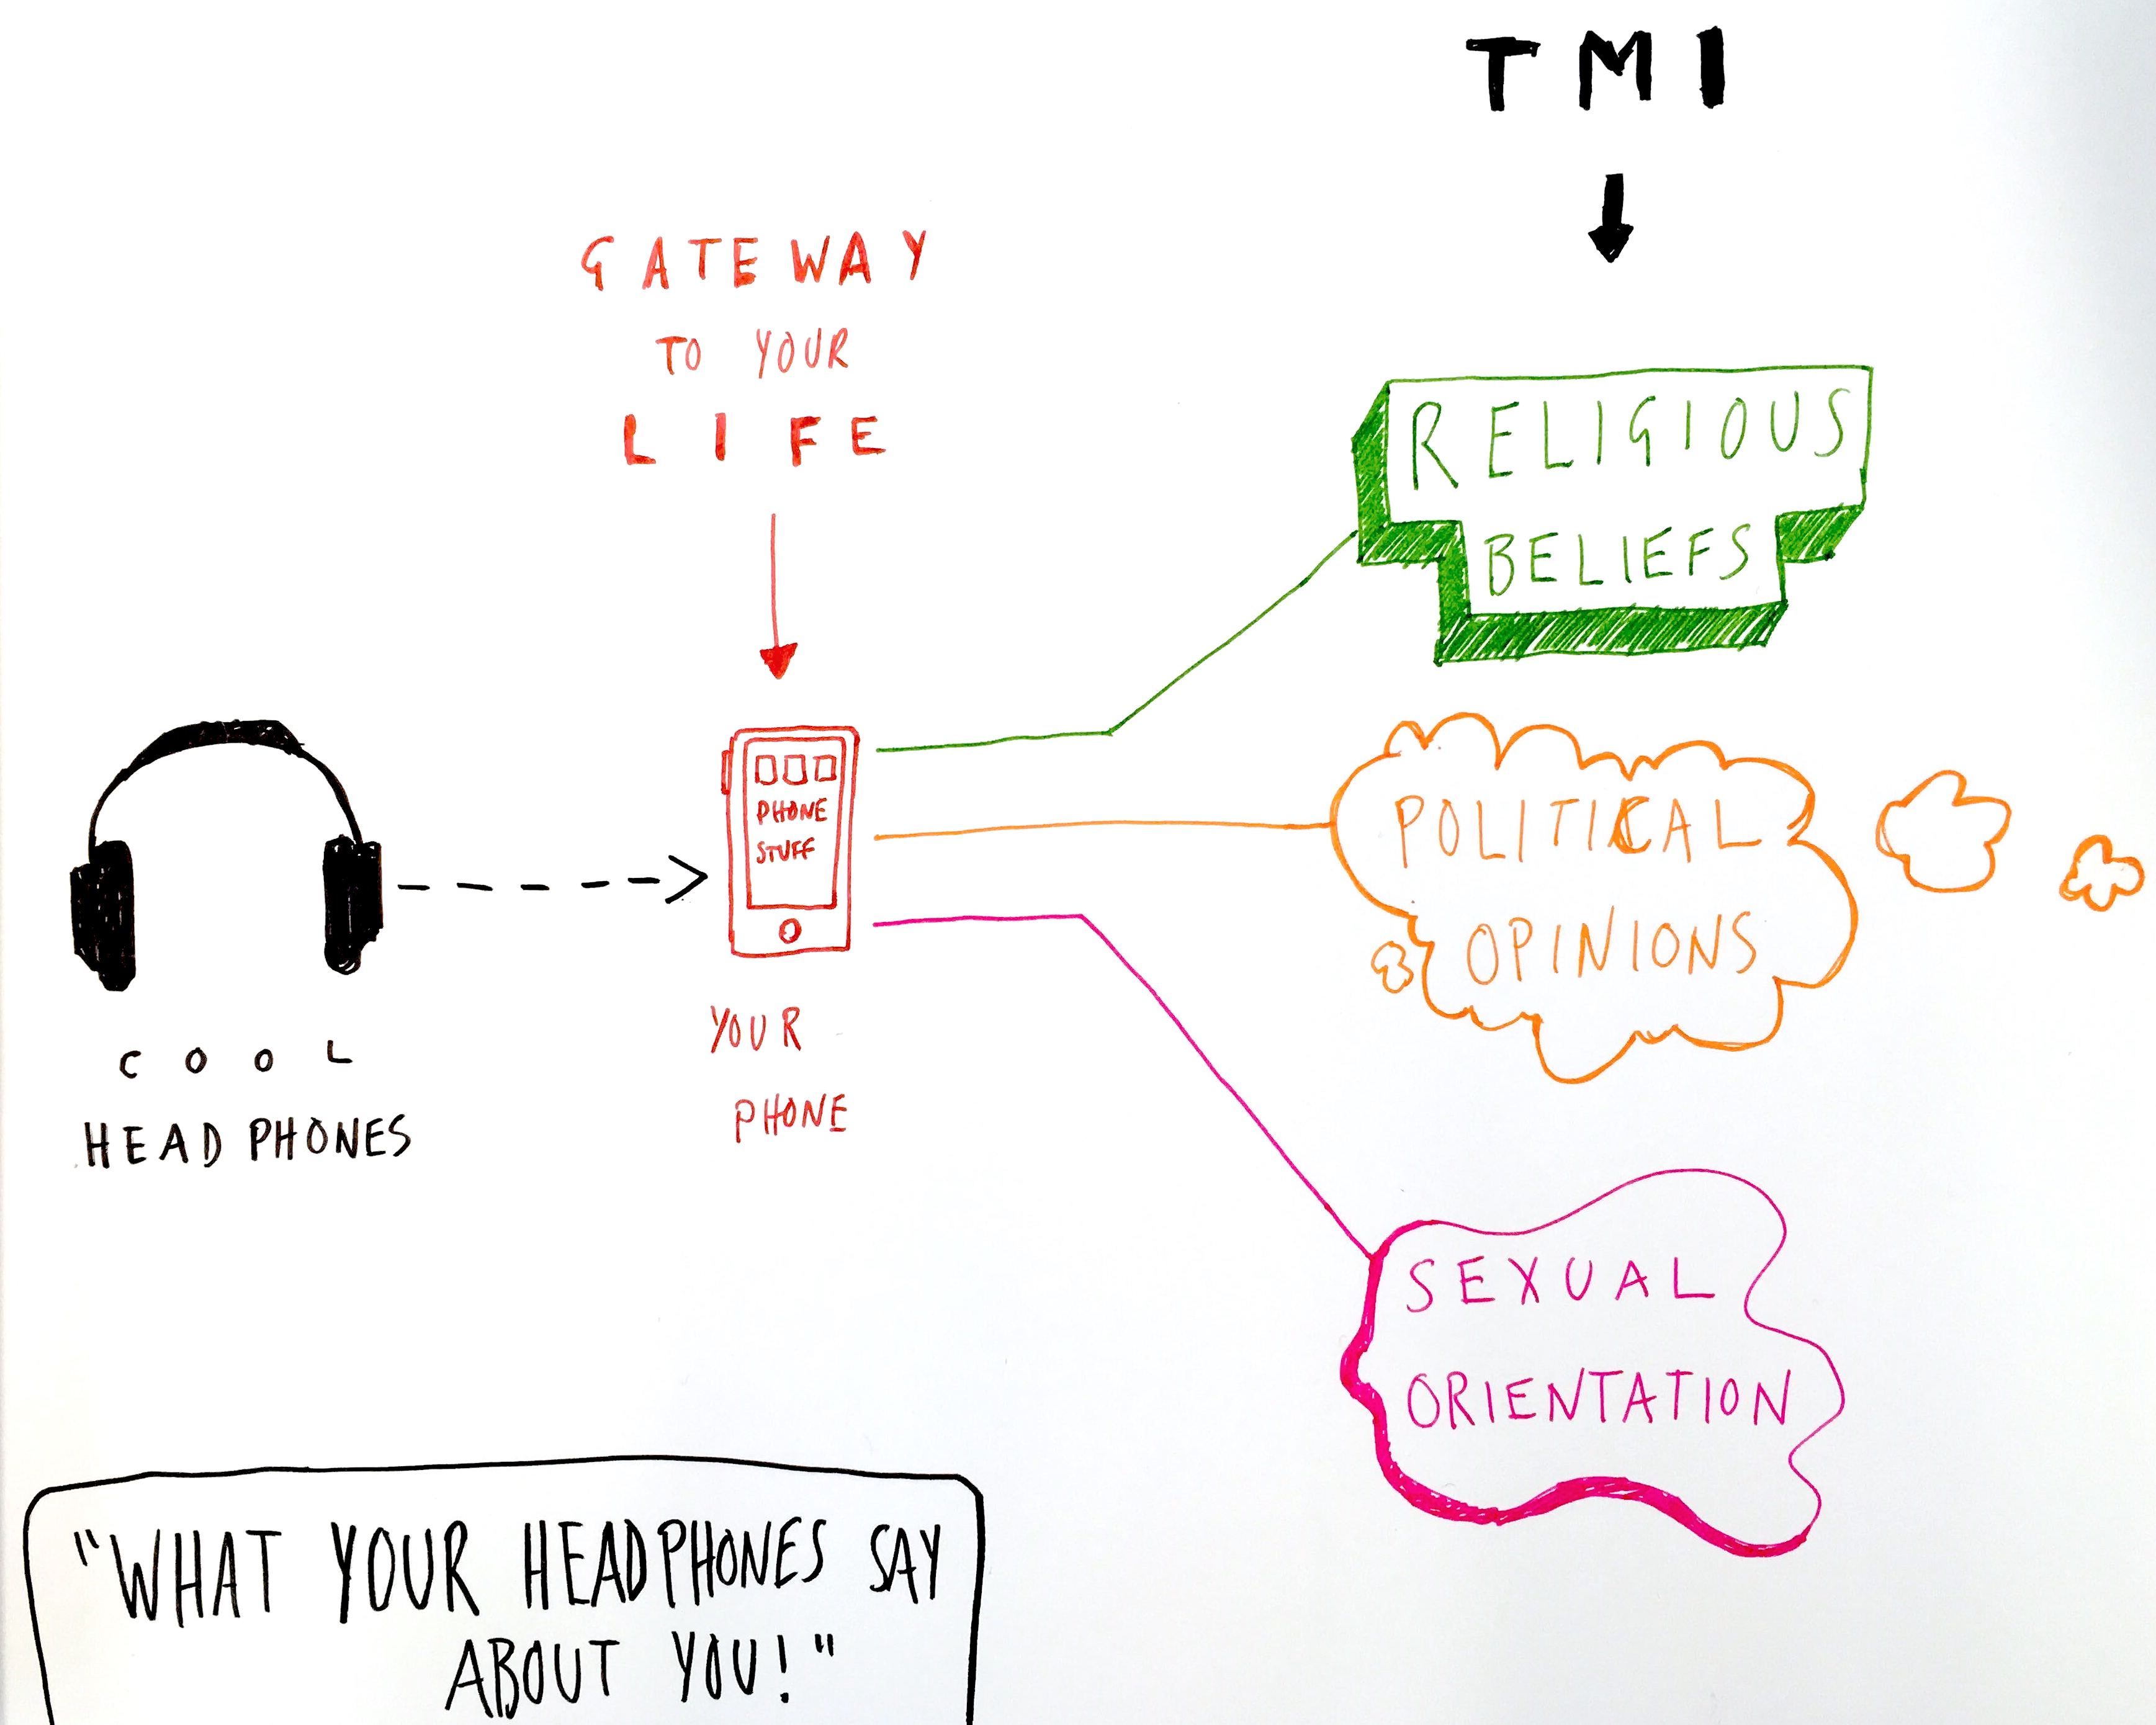 TMI
GATEWAY
TO YOUR
LIFE
RELIGIOUS
BELIEFS
PHONE
STUFF
POLITICAL
OPINIONS
COOL
HEADPHONES
YOUR
PHONE
SEXUAL
ORIENTATION
"WHAT YOUR HEADPHONES SAY
ABOUT YOU!"